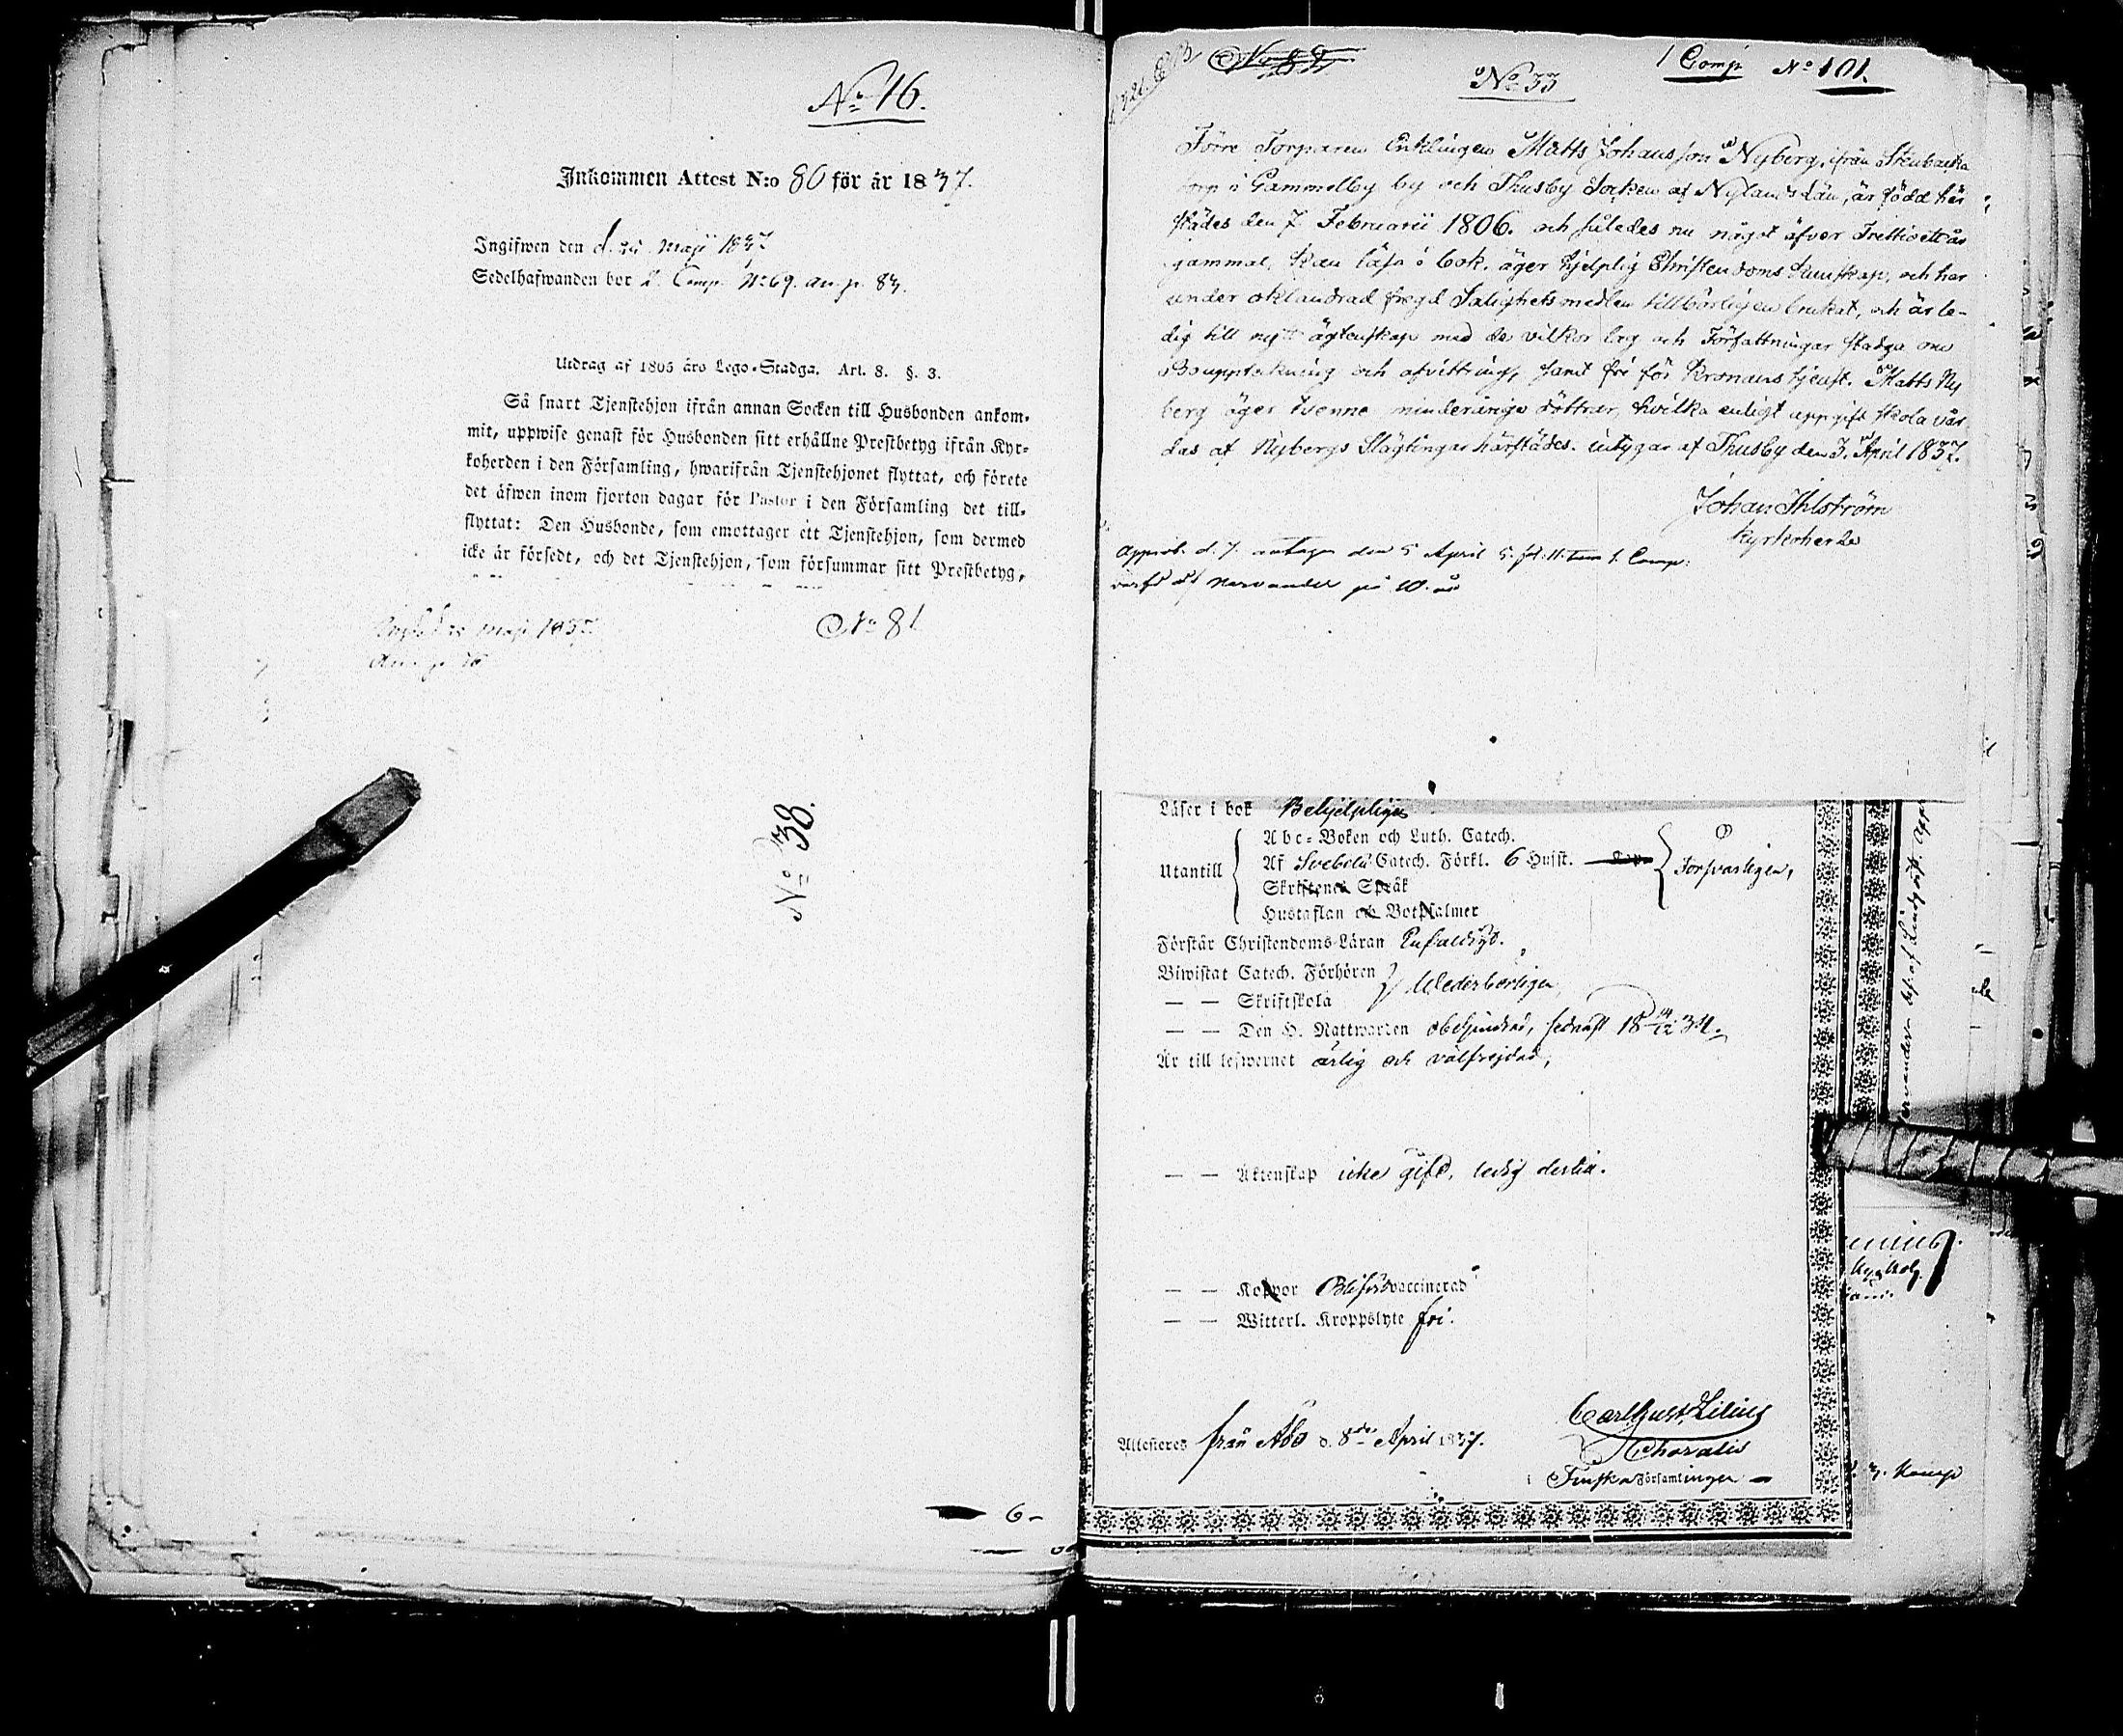 No 16.
Inkommen Attest N:o 80 för år 1837.
Ingifwen den d. Maji 1837
Sedelhafwanden bor 2. Comp. No 69. an. p. 83.
Utdrag af 1805 års Lego-Stadga. Art. 8. §. 3.
Så snart Tjenstehjon ifrån annan Socken till Husbonden ankom-
mit, uppwise genast för Husbonden sitt erhållne Prestbetyg ifrån Kyr-
koherden i den Församling, hwarifrån Tjenstehjonet flyttat, och förete
det äfwen inom fjorton dagar för Pastor i den Församling det till-
flyttat: Den Husbonde, som emottager ett Tjenstehjon, som dermed
icke är försedt, och det Tjenstehjon, som försummar sitt Prestbetyg,
Maji 1837
No 81
No 38.
6-
No 33
1 Comp No 101.
Förre Torparen Enklingen Matts Johansson Nyberg, ifrån Stenbacka
torp i Gammelby by och Thusby Socken af Nylands Län, är född här
städes den 7 Februarii 1806. och således nu något öfver Trettioett år
gammal, kan läsa i bok, äger hjelplig Christendoms kunskap, och har
under oklandrad frägd Salighetsmedlen tillbörligen brukat, och är le-
dig till nytt ägtenskap med de vilkor lag och Författningar stadga om
Bouppteckning och afvittring, samt fri för Kronans tjenst. Matts Ny
berg äger tvenne minderåriga döttrar, hvilka enligt uppgift skola vår
das af Nybergs Slägtingar härstädes. intygar af Thusby den 3. April 1837.
Johan Ihlström
Kyrkoherde
Approb. d. 7. antagen den 5 April 1. Comp:
Narvander på 10. år
Läser i bok Behjelpligen
Abc-Boken och Luth. Catech.
Utantill
Af Svebelii Catech. Förkl. 6 Hufst.
Försvarligen,
Skriftenes Språk
Hustaflan och Botpsalmer
Förstår Christendoms-Läran Enfaldigt.
Biwistat Catech. Förhören
Wederbörligen
— — Skriftskola
— — Den H. Nattwarden obehindrad, sednast 18 14/12 34.
Är till lefwernet ärlig och välfrejdad,
— — Äktenskap icke gift, ledig dertill.
— — Koppor vaccinerad
— — Witterl. Kroppslyte fri.
Attesteras från Åbo d. 8de April 1837.
Carl Gust. Lilius
i Finska Församlingen
3. Komp